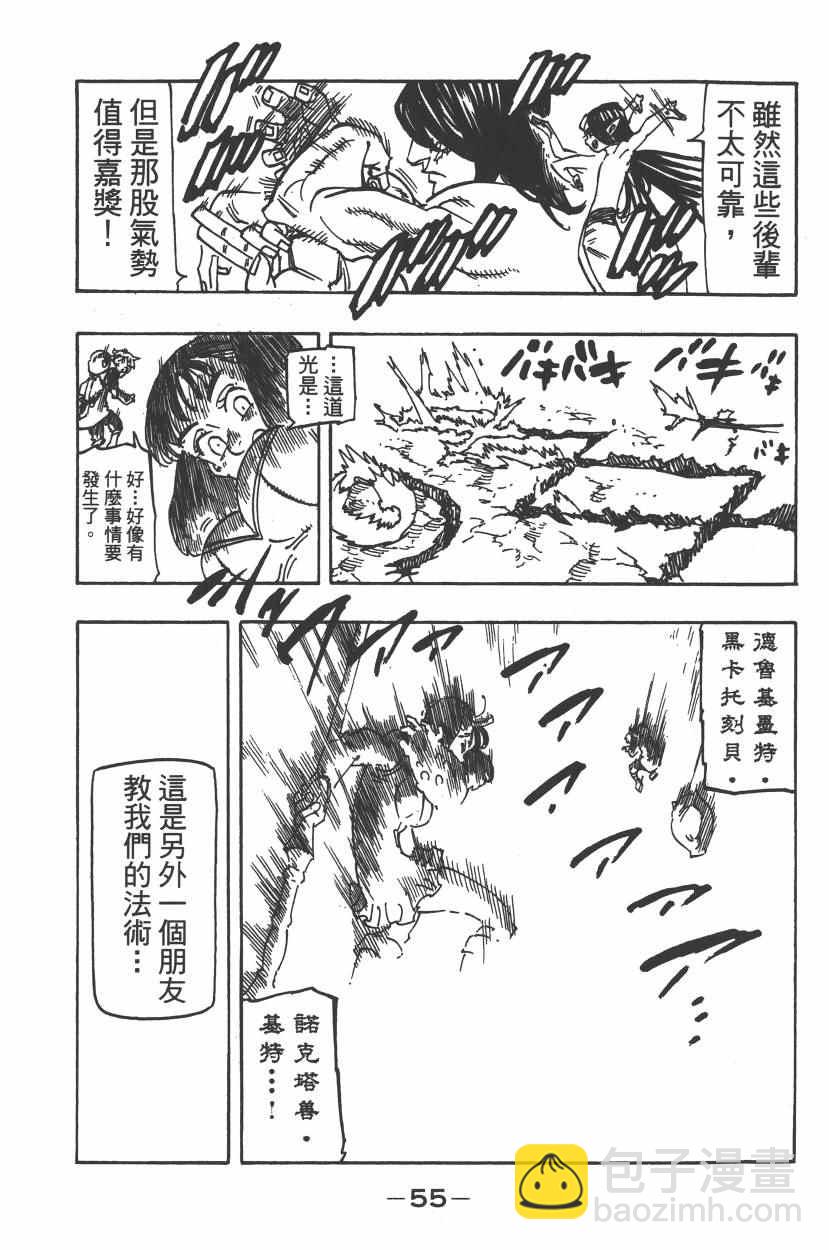 雖然這些後輩
不太可靠，
但是那股氣勢
值得嘉獎！
バキバキ
バキ
…這道
光是…
好…好像有
什麼事情要
發生了。
德魯基墨特·
黑卡托刻貝·
諾克塔善·
基特…！
這是另外一個朋友
教我們的法術…
—55—
包子漫畫
baozimh.com